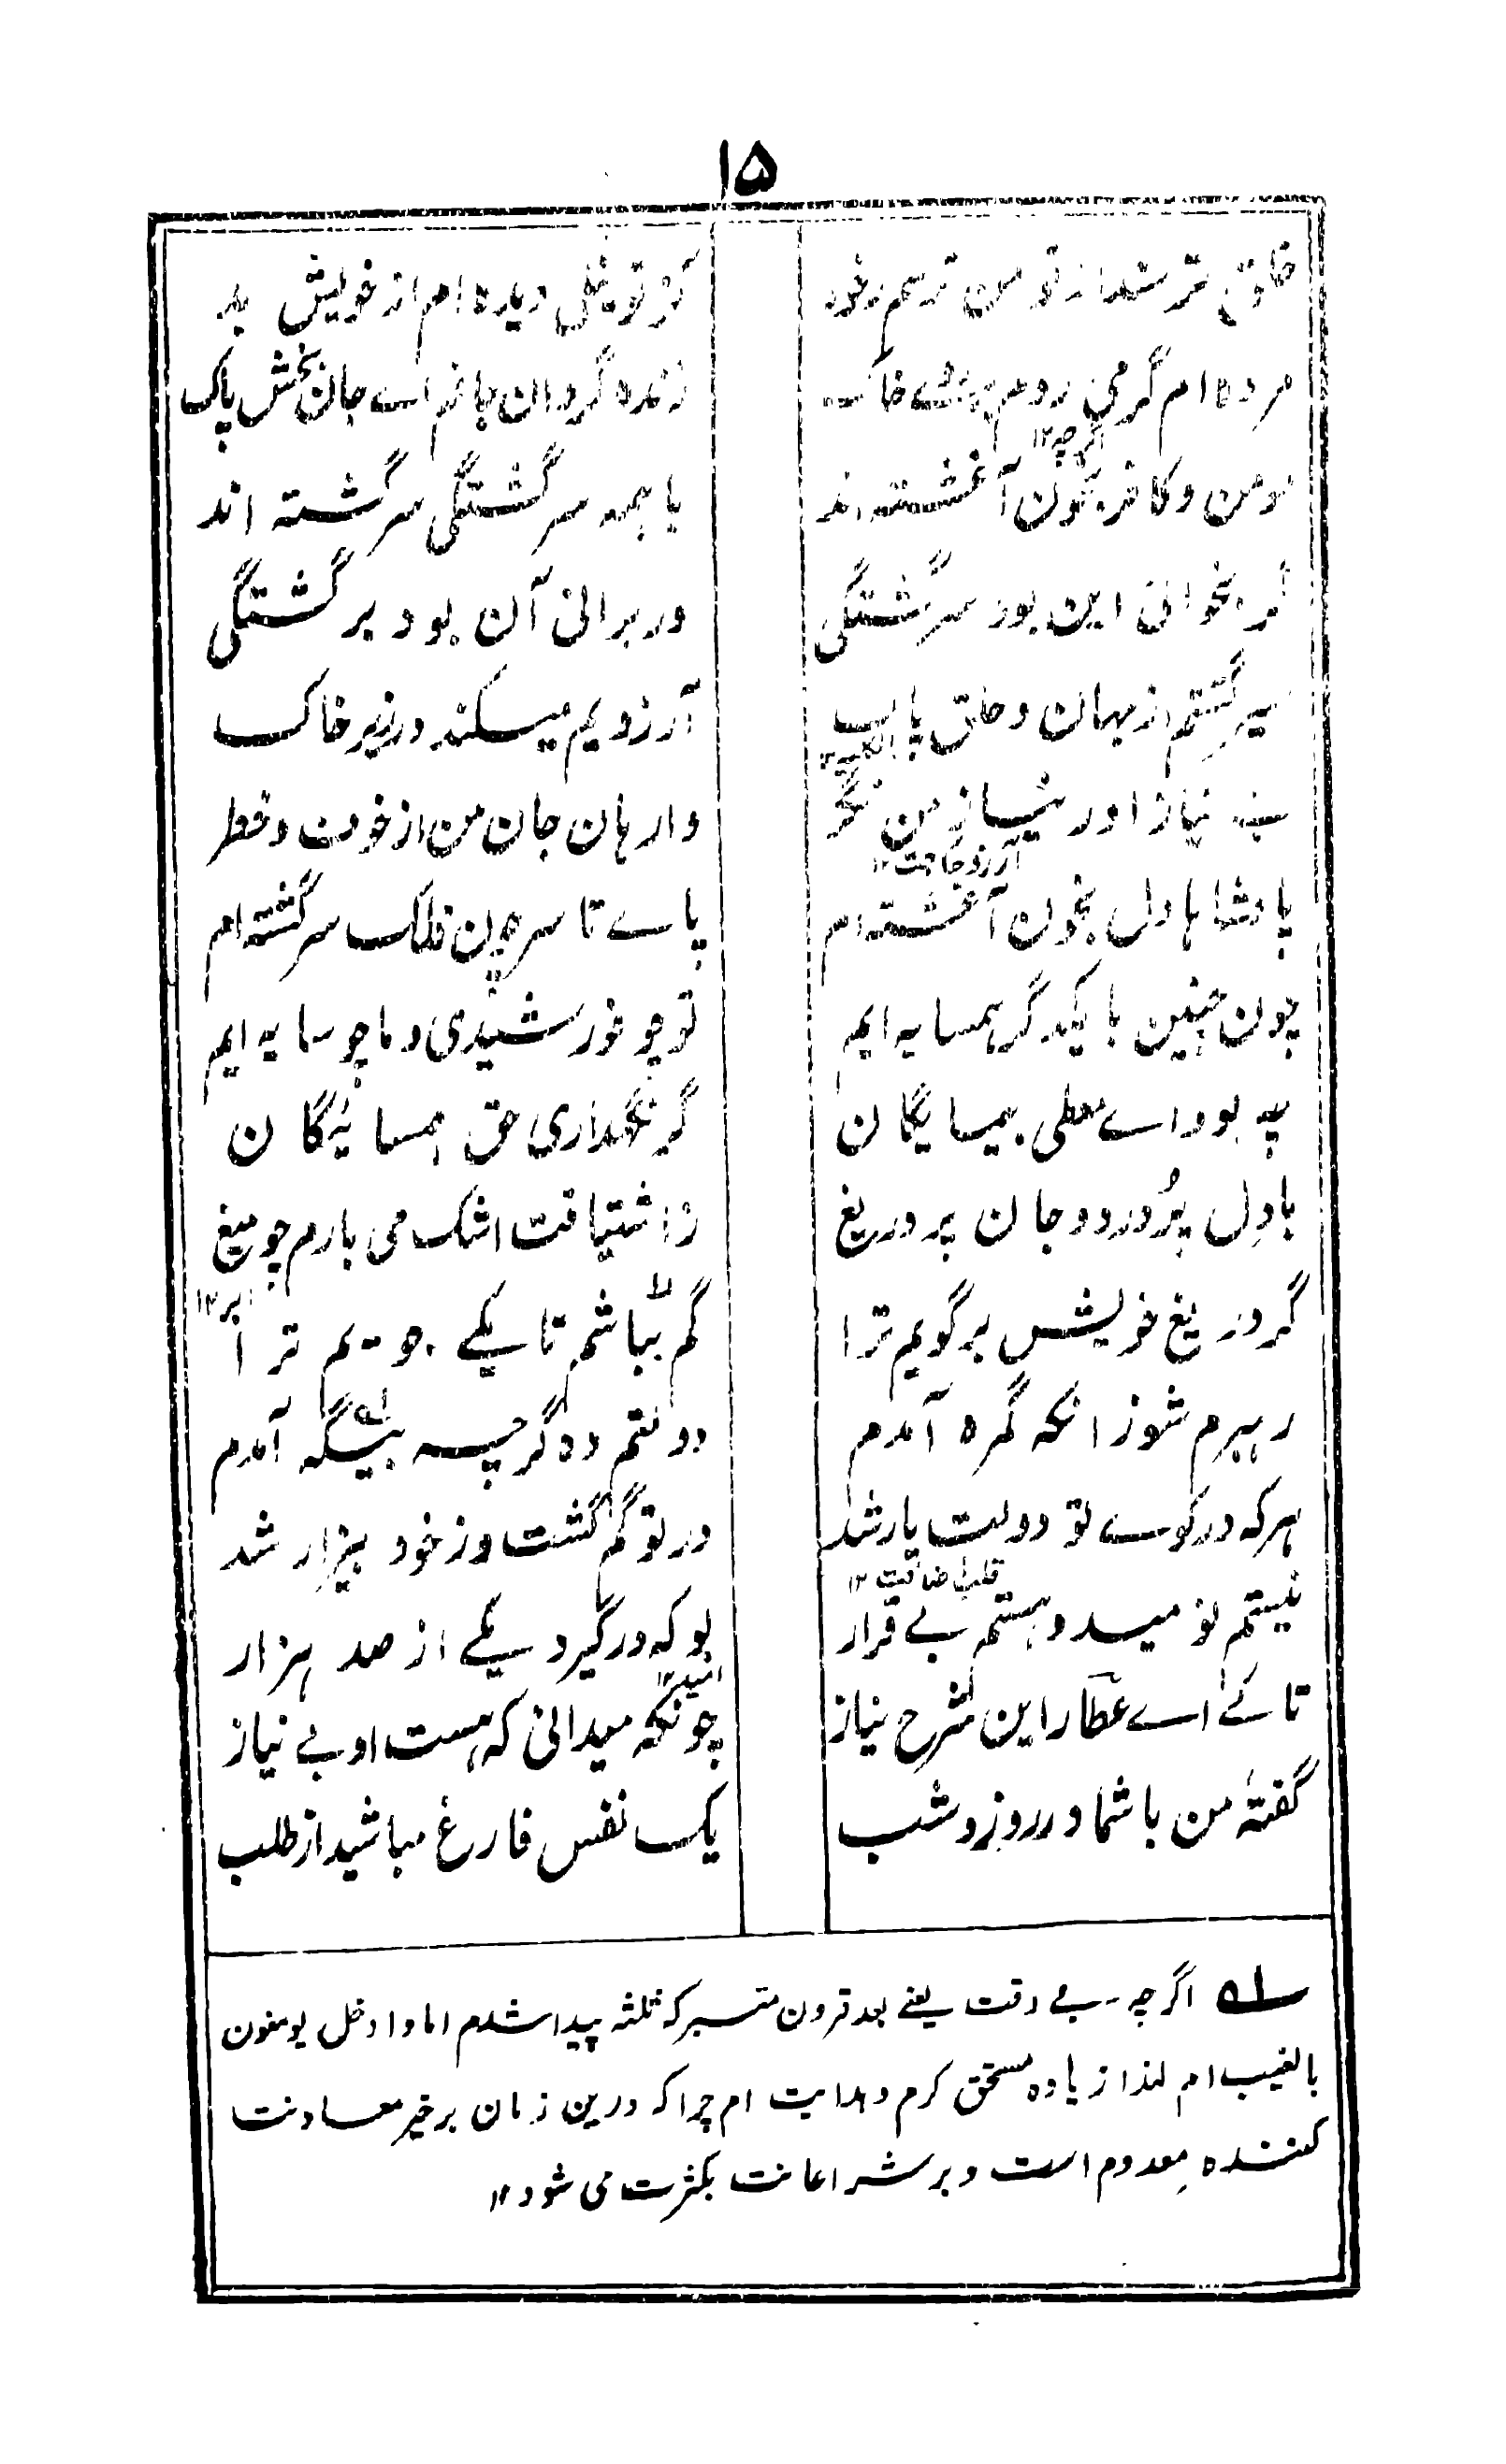 ۱۵
خلق ترسند از تو من ترسم ز خود کز تو نیکی دیده ام از خویش بد
مرده ام گر می روم بر روے خاک زنده گردان جانم اے جان بخش پاک
اگرچه ۱۲
مومن و کافر بخون آغشته اند یا همه سرگشتگی سرگشته اند
گر بخوانی این بود سرگشتگی ور برانی آن بود برگشتگی
سیر گشتم از جهان و خلق پاک آرزویم میکند در زیر خاک
بے نیازا در نیاز من نگر وارهان جان من از خوف و خطر
آرزو حاجت ۱۲
پادشاها دل بخون آغشته ام پاے تا سر چون فلک سرگشته ام
چون چنین با یکدگر همسایه ایم تو چو خورشیدی و ما چو سایه ایم
چه بود اے معطی بیمایگان گر نگهداری حق همسائیگان
با دِل پُر درد و جان پر دریغ ز اشتیاقت اشک می بارم چو میغ
ابر ۱۲
گر دریغ خویش برگویم ترا گم بباشم تا یکے جویم ترا
رهبرم شو زانکه گمره آمدم دولتم ده گرچه بیگه آمدم
هرکه در کوے تو دولت یار شد در تو گم گشت وز خود بیزار شد
نیستم نومید و هستم بے قرار بوکه درگیرد یکے از صد هزار
امید ۱۲
تا کے اے عطّار این شرح نیاز چونکه میدانی که هست او بے نیاز
گفتهٔ من با شما در روز و شب یک نفس فارغ مباشید از طلب
له اگرچه بے وقت یعنے بعد قرون متبرکه ثلثه پیدا شدم اما داخل یومنون
بالغیب ام لهذا زیاده مستحق کرم و هدایت ام چرا که درین زمان بر خیر معاونت
کننده معدوم است و بر شر اعانت بکثرت می شود ۱۲